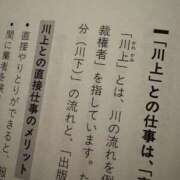 「川上」との仕事は、「
「川上」とは、川の流れを例
裁権者」を指しています。
分（川下）の流れと、「出版
川上との直接仕事のメリット
・直接やりとりができると、
・間に業者を挟